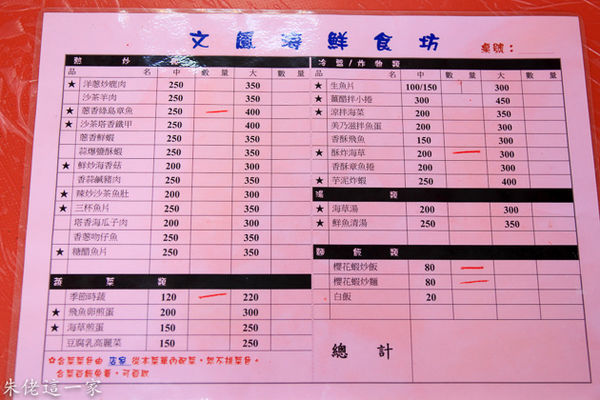 文鳳海鮮食坊
桌號:
熱炒類
品 名 中 數量 大 數量
★ 洋蔥炒鹿肉 250 350
沙茶羊肉 250 350
★ 蔥香綠島章魚 250 400
★ 沙茶塔香鐵甲 250 400
蔥香鮮蝦 250 350
蒜爆鹽酥蝦 250 350
★ 鮮炒海香菇 200 300
香蒜鹹豬肉 250 350
★ 辣炒沙茶魚肚 200 300
★ 三杯魚片 250 350
塔香海瓜子肉 200 300
香蔥吻仔魚 250 350
★ 糖醋魚片 250 350
蔬菜類
季節時蔬 120 220
★ 飛魚卵煎蛋 200 300
★ 海草煎蛋 150 250
豆腐乳高麗菜 150 250
冷盤/炸物類
品 名 中 數量 大 數量
★ 生魚片 100/150 300
★ 薑醋拌小捲 300 450
★ 涼拌海菜 200 300
美乃滋拌魚蛋 200 300
香酥飛魚 150 300
★ 酥炸海草 200 300
香酥章魚捲 200 300
★ 芋泥炸蝦 250 400
湯類
★ 海草湯 200 300
★ 鮮魚清湯 200 300
麵飯類
櫻花蝦炒飯 80
櫻花蝦炒麵 80
白飯 20
總計
朱佬這一家